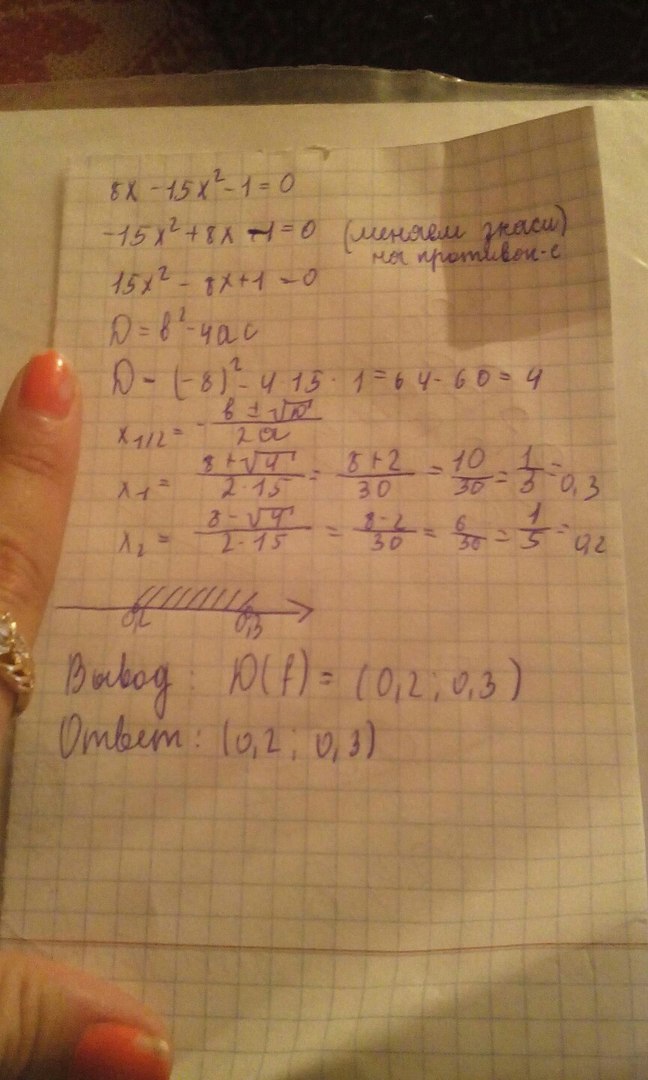 8x - 15x² - 1 = 0
-15x² + 8x - 1 = 0 (меняем знаки
на противоп-е)
15x² - 8x + 1 = 0
D = b² - 4ac
D = (-8)² - 4·15·1 = 64 - 60 = 4
x1/2 = - b ± √D / 2a
x1 = 8 + √4 / 2·15 = 8 + 2 / 30 = 10/30 = 1/3 = 0,3
x2 = 8 - √4 / 2·15 = 8 - 2 / 30 = 6/30 = 1/5 = 0,2
0,2 0,3
Вывод: D(f) = (0,2; 0,3)
Ответ: (0,2; 0,3)